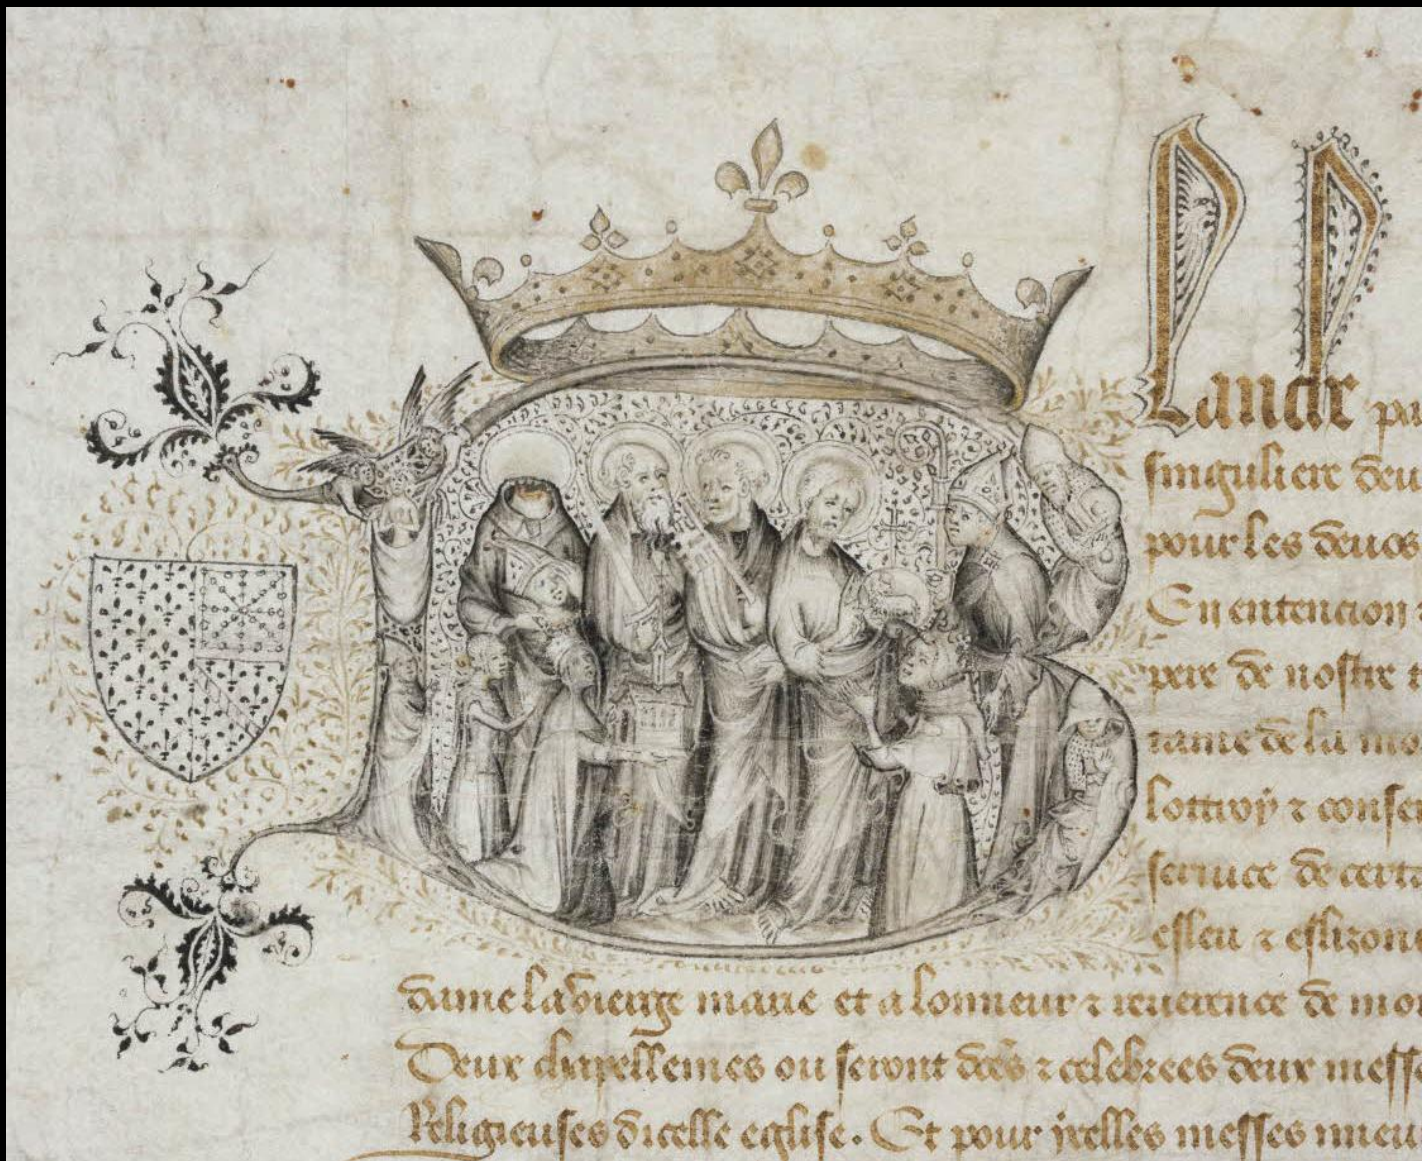 Blanche pa
singuliere deu
pour les deuos
En entencion
pere de nostre t
tame de la mo
service de certa
esleu ⁊ eslisons
dame la vierge marie et a lonneur ⁊ reuerence de mon
Deux chapellenies ou seront dces ⁊ celebrees deux messe
Religieuses dicelle eglise. Et pour icelles messes mieu